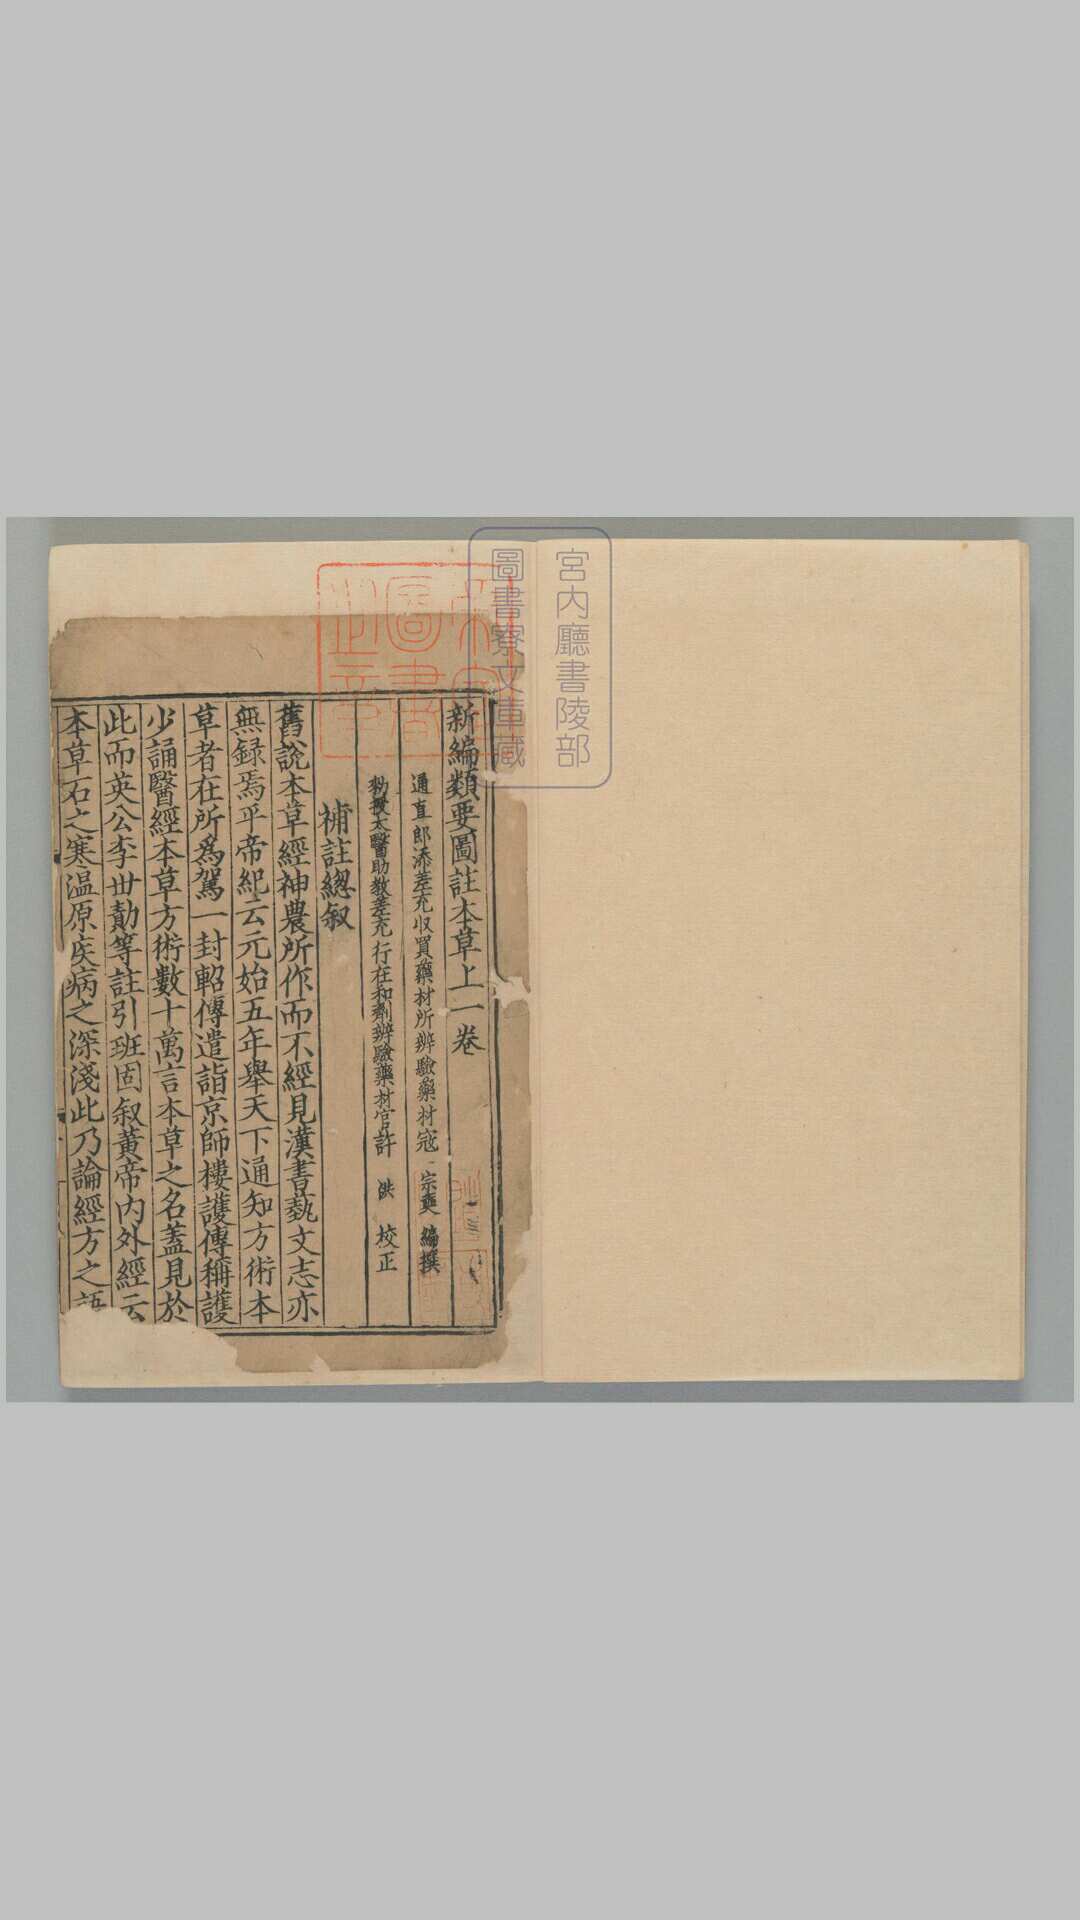 宮内廳書陵部
圖書寮文庫藏
新編類要圖註本草上一卷
通直郎添差充収買藥材所辨驗藥材寇宗奭編撰
勑授太醫助教差充行在和劑辨驗藥材官許洪校正
補註緫叙
舊說本草經神農所作而不經見漢書藝文志亦
無録焉平帝紀云元始五年舉天下通知方術本
草者在所爲駕一封軺傳遣詣京師樓護傳稱護
少誦醫經本草方術數十萬言本草之名蓋見於
此而英公李丗勣等註引班固叙黃帝内外經云
本草石之寒温原疾病之深淺此乃論經方之語
圖書
之章